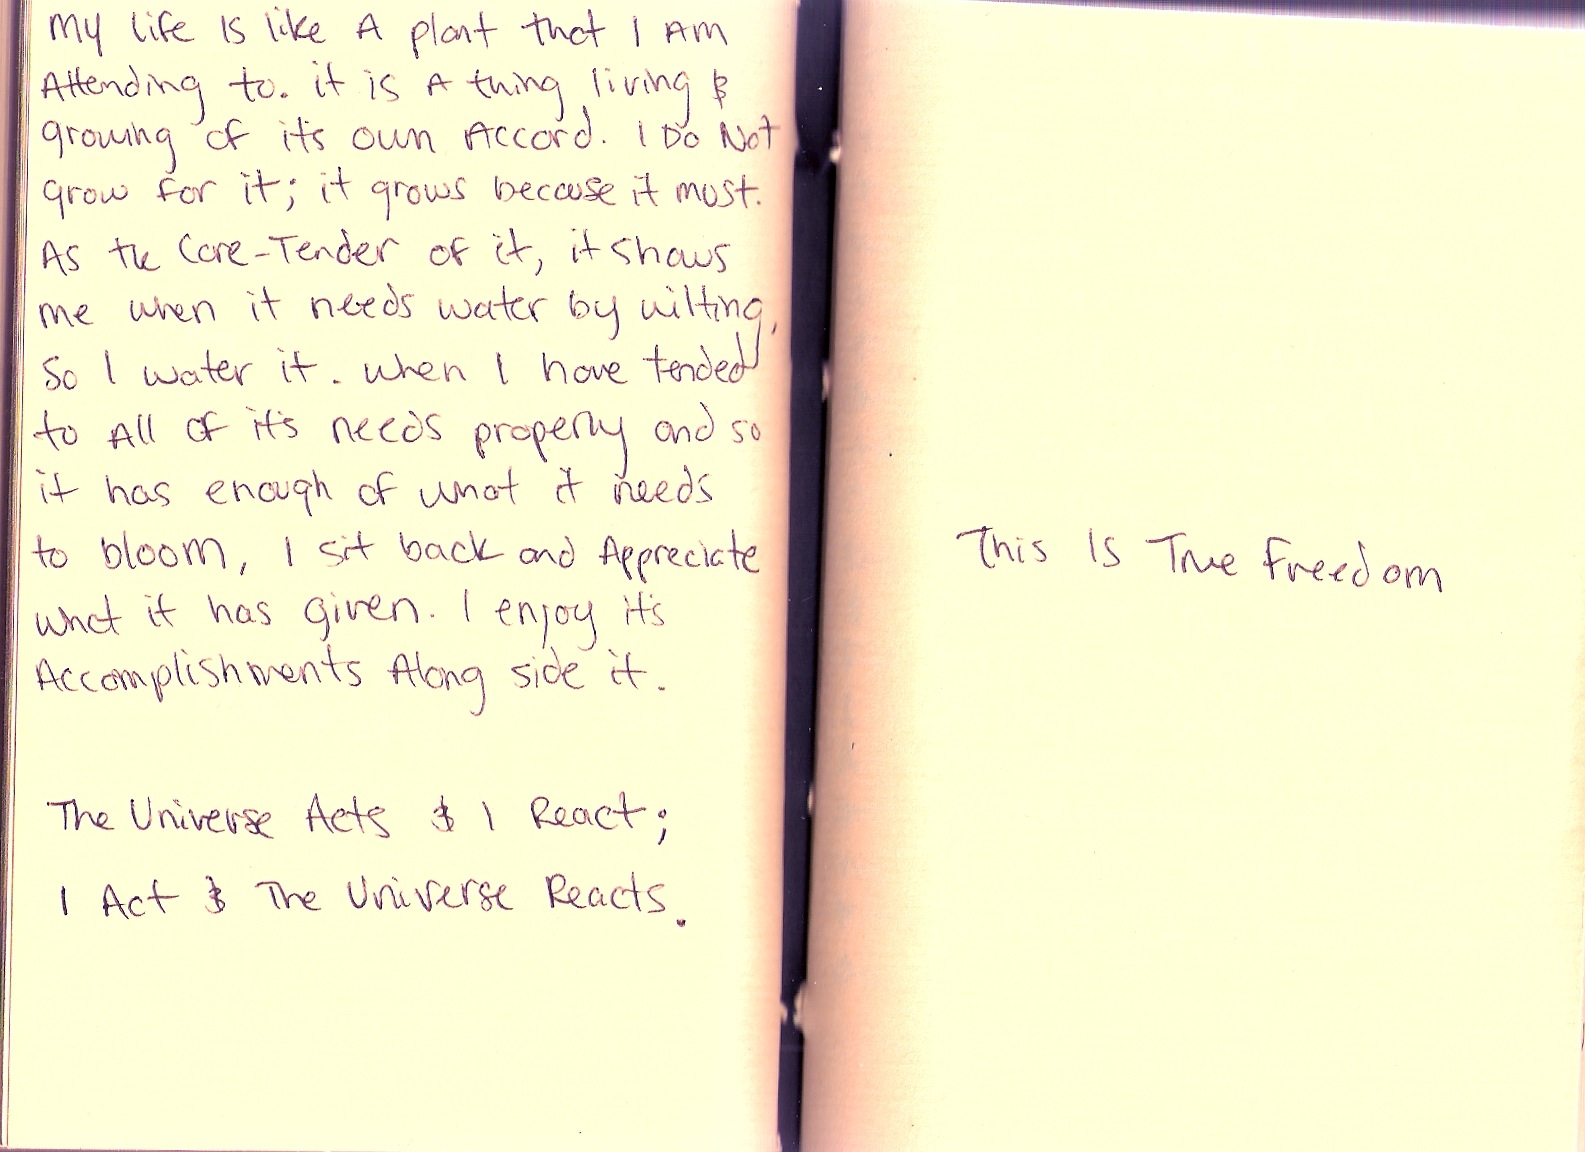 My life Is like A plant that I Am
Attending to. it is A thing living &
growing of it's own Accord. I Do Not
grow for it; it grows because it must.
As the Care-Tender of it, it shows
me when it needs water by wilting,
so I water it. when I have tended
to All of it's needs properly and so
it has enough of what it needs
to bloom, I sit back and Appreciate
what it has given. I enjoy it's
Accomplishments Along side it.
The Universe Acts & I React;
I Act & The Universe Reacts.
This Is True Freedom